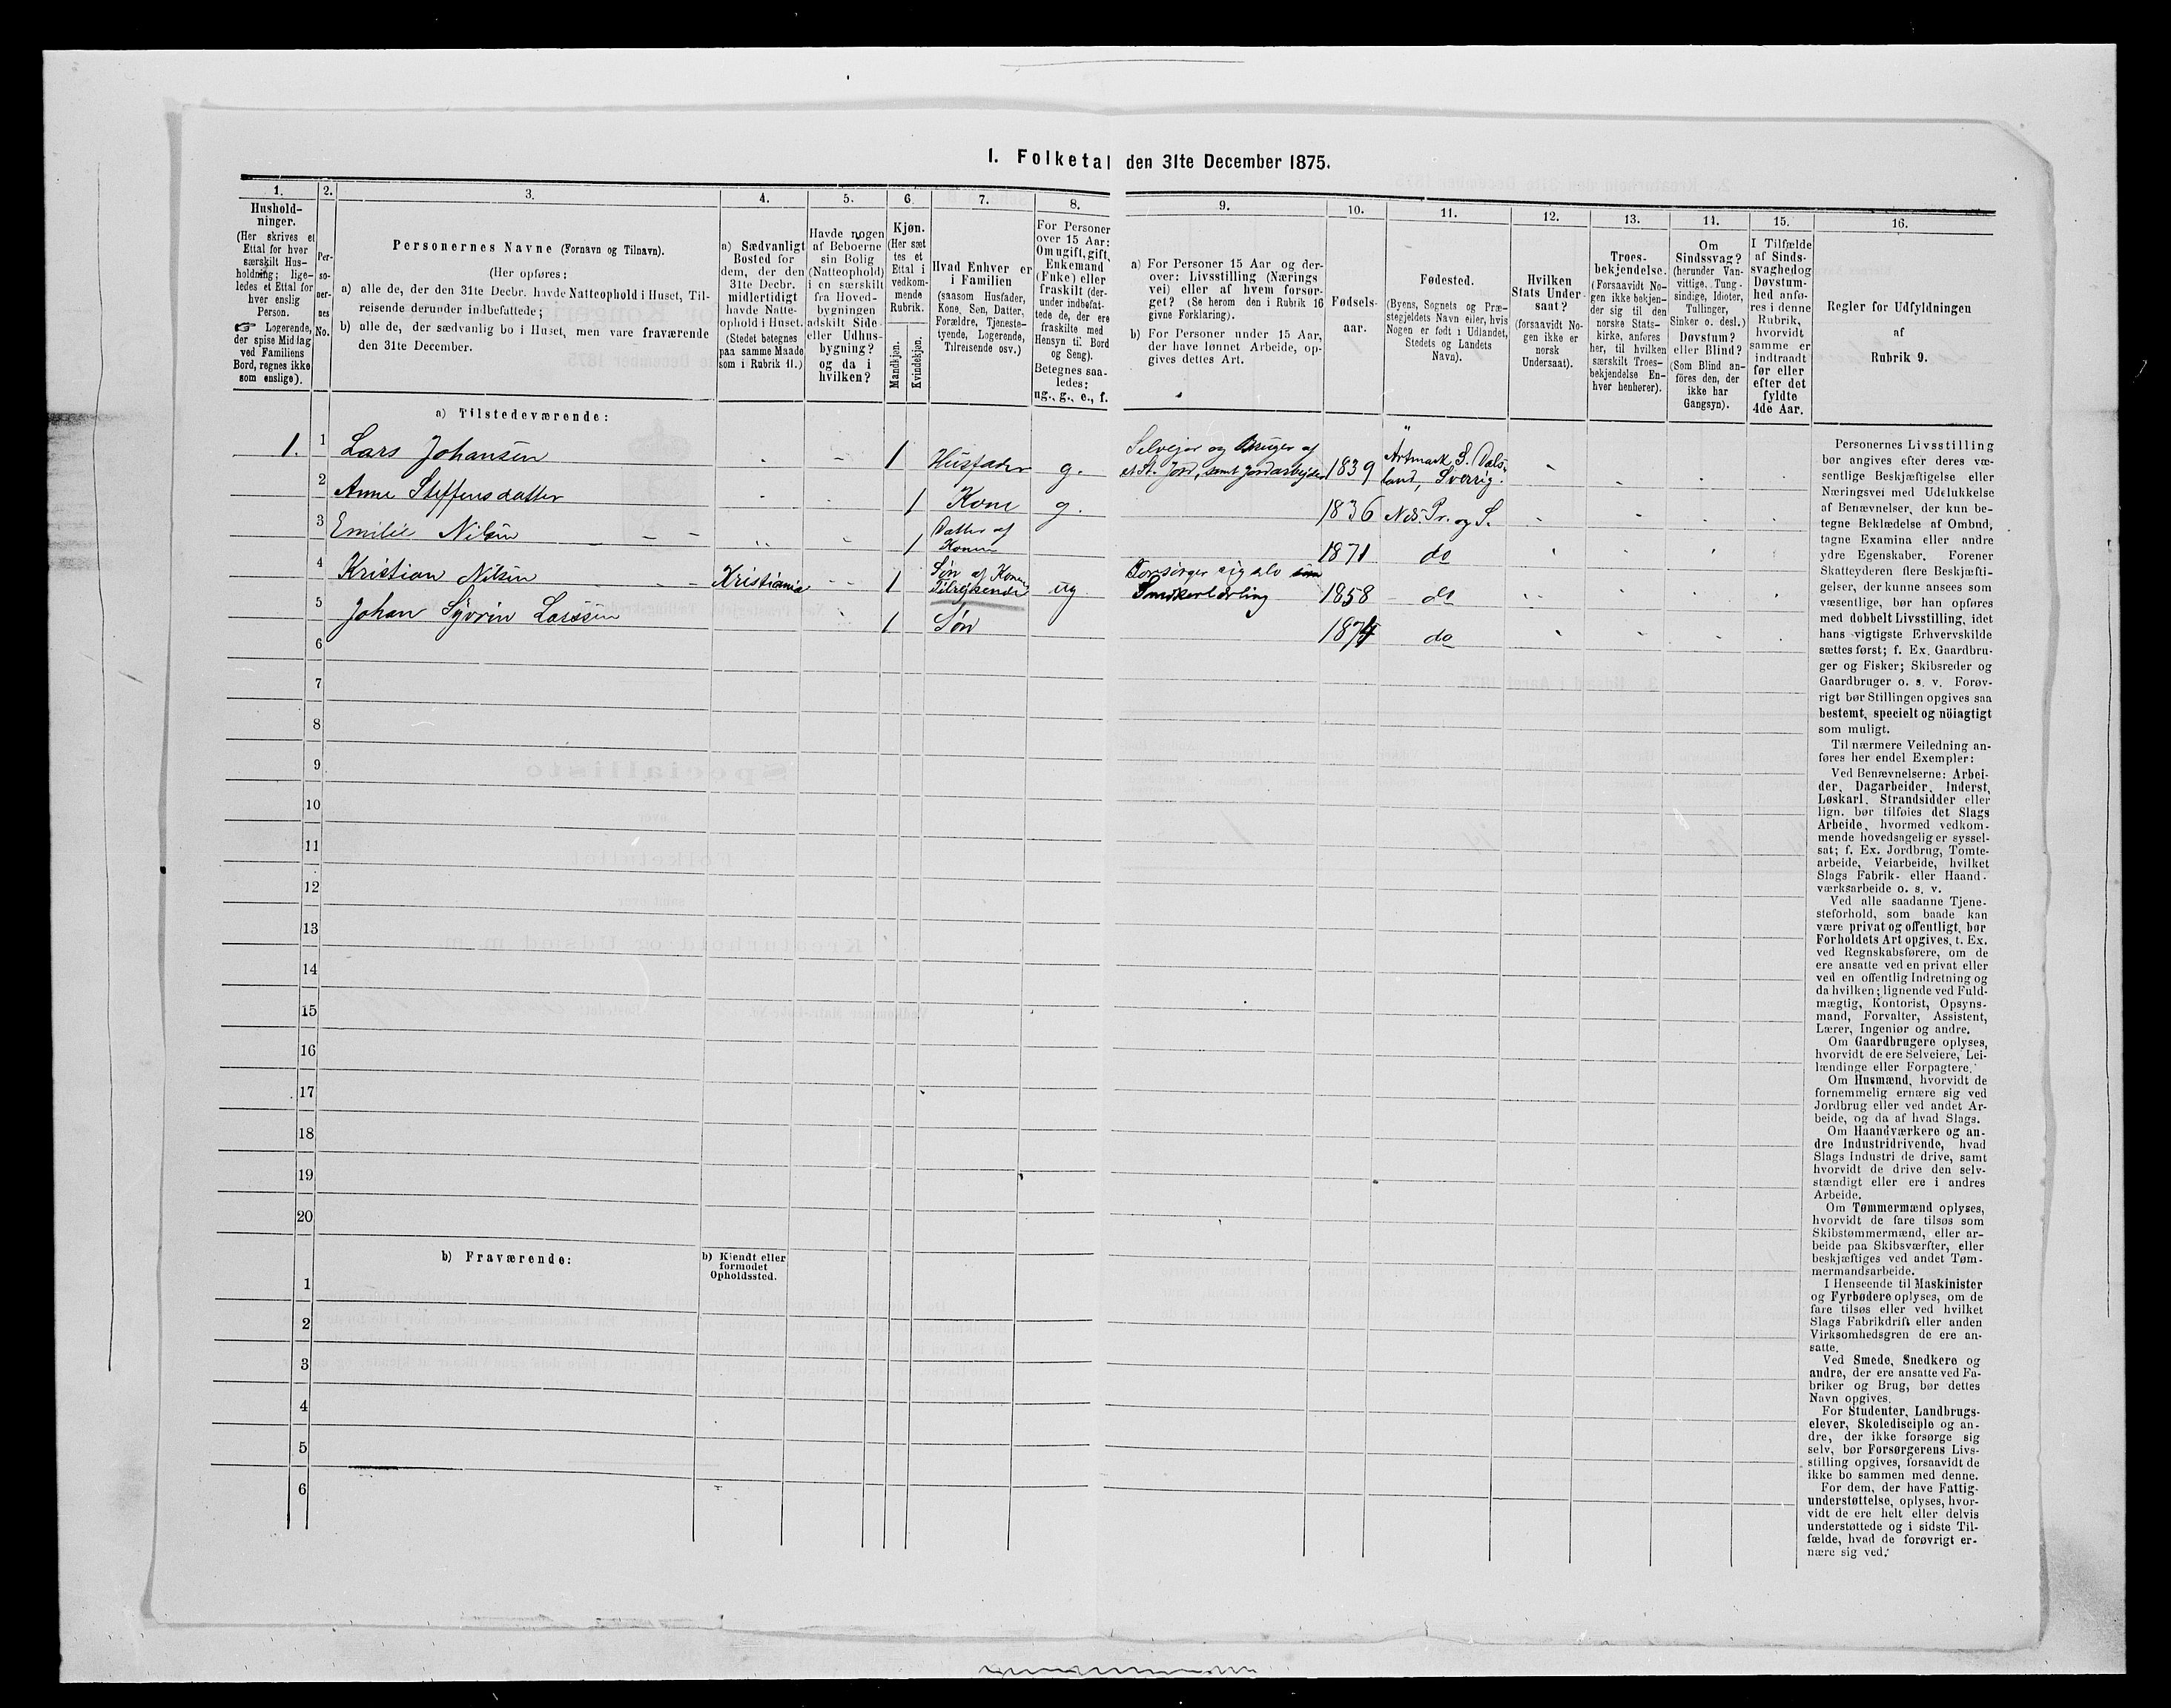 1. Folketal den 31te December 1875.
1.
Hushold-
ninger.
(Her skrives et
Ettal for hver
særskilt Hus-
holdning; lige-
ledes et Ettal for
hver enslig
Person.
☞ Logerende,
der spise Middag
ved Familiens
Bord, regnes ikke
som enslige).
2.
Per-
so-
ner-
nes
No.
3.
Personernes Navne (Fornavn og Tilnavn).
(Her opføres:
a) alle de, der den 31te Decbr. havde Natteophold i Huset, Til-
reisende derunder indbefattede;
b) alle de, der sædvanlig bo i Huset, men vare fraværende
den 31te December.
4.
a) Sædvanligt
Bosted for
dem, der den
31te Decbr.
midlertidigt
havde Natte-
ophold i Huset.
(Stedet betegnes
paa samme Maade
som i Rubrik 11.)
5.
Havde nogen
af Beboerne
sin Bolig
(Natteophold)
i en særskilt
fra Hoved-
bygningen
adskilt Side-
eller Udhus-
bygning?
og da i
hvilken?
6.
Kjøn.
(Her sæt
tes et
Ettal i
vedkom-
mende
Rubrik.
Mandkjøn.
Kvindekjøn.
7.
Hvad Enhver er
i Familien
(saasom Husfader,
Kone, Søn, Datter,
Forældre, Tjeneste-
tyende, Logerende,
Tilreisende osv.)
8.
For Personer
over 15 Aar:
Om ugift, gift,
Enkemand
(Enke) eller
fraskilt (der-
under indbefat-
tede de, der ere
fraskilte med
Hensyn til Bord
og Seng).
Betegnes saa-
ledes:
ug., g., e., f.
9.
a) For Personer 15 Aar og der-
over: Livsstilling (Nærings
vei) eller af hvem forsør-
get? (Se herom den i Rubrik 16
givne Forklaring).
b) For Personer under 15 Aar,
der have lønnet Arbeide, op-
gives dettes Art.
10.
Fødsels-
aar.
11.
Fødested.
(Byens, Sognets og Præ-
stegjeldets Navn eller, hvis
Nogen er født i Udlandet,
Stedets og Landets
Navn).
12.
Hvilken
Stats Under-
saat?
(forsaavidt No-
gen ikke er
norsk
Undersaat).
13.
Troes-
bekjendelse.
(Forsaavidt No-
gen ikke bekjen-
der sig til den
norske Stats-
kirke, anføres
her, til hvilken
særskilt Troes-
bekjendelse En-
hver henhører).
14.
Om
Sindssvag?
(herunder Van-
vittige, Tung-
sindige, Idioter,
Tullinger,
Sinker o. desl.)
Døvstum?
eller Blind?
(Som Blind an-
føres den, der
ikke har
Gangsyn).
15.
I Tilfælde
af Sinds-
svaghed og
Døvstum-
hed anfø-
res i denne
Rubrik,
hvorvidt
samme er
indtraadt
før eller
efter det
fyldte
4de Aar.
16.
Regler for Udfyldningen
af
Rubrik 9.
a) Tilstedeværende:
1. 1 Lars Johansen 1 Husfader g. Selveier og Bruger af et St. Jord, samt Jordarbejder 1839 Artmark S. Dals-land, Sverrig.
2 Anne Steffensdatter 1 Kone g. 1836 Nes Pr. og S.
3 Emilie Nilsen 1 Datter af Konen 1871 do
4 Kristian Nilsen Kristiania 1 Søn af Konen Tilrejsende ug Forsørger sig selv som Snedkerlærling 1858 do
5 Johan Syvrin Larssen 1 Søn 1874 do
6
7
8
9
10
11
12
13
14
15
16
17
18
19
20
b) Fraværende:
b) Kjendt eller
formodet
Opholdssted.
1
2
3
4
5
6
Personernes Livsstilling
bør angives efter deres væ-
sentlige Beskjæftigelse eller
Næringsvei med Udelukkelse
af Benævnelser, der kun be-
tegne Beklædelse af Ombud,
tagne Examina eller andre
ydre Egenskaber. Forener
Skatteyderen flere Beskjæfti-
gelser, der kunne ansees som
væsentlige, bør han opføres
med dobbelt Livsstilling, idet
hans vigtigste Erhvervskilde
sættes først; f. Ex. Gaardbru-
ger og Fisker; Skibsreder og
Gaardbruger o. s. v. Forøv-
rigt bør Stillingen opgives saa
bestemt, specielt og nöiagtigt
som muligt.
Til nærmere Veiledning an-
føres her endel Exempler:
Ved Benævnelserne: Arbei-
der, Dagarbeider, Inderst,
Løskarl, Strandsidder eller
lign. bør tilføies det Slags
Arbeide, hvormed vedkom-
mende hovedsagelig er syssel-
sat; f. Ex. Jordbrug, Tomte-
arbeide, Veiarbeide, hvilket
Slags Fabrik- eller Haand-
værksarbeide o. s. v.
Ved alle saadanne Tjene-
steforhold, som baade kan
være privat og offentligt, bør
Forholdets Art opgives, t. Ex.
ved Regnskabsførere, om de
ere ansatte ved en privat eller
ved en offentlig Indretning og
da hvilken; lignende ved Fuld-
mægtig, Kontorist, Opsyns-
mand, Forvalter, Assistent,
Lærer, Ingeniør og andre.
Om Gaardbrugere oplyses,
hvorvidt de ere Selveiere, Lei-
lændinge eller Forpagtere.
Om Husmænd, hvorvidt de
fornemmelig ernære sig ved
Jordbrug eller ved andet Ar-
beide, og da af hvad Slags.
Om Haandværkere og an-
dre Industridrivende, hvad
Slags Industri de drive, samt
hvorvidt de drive den selv-
stændigt eller ere i andres
Arbeide.
Om Tømmermænd oplyses,
hvorvidt de fare tilsøs som
Skibstømmermænd, eller ar-
beide paa Skibsværfter, eller
beskjæftiges ved andet Tøm-
mermandsarbeide.
I Henseende til Maskinister
og Fyrbødere oplyses, om de
fare tilsøs eller ved hvilket
Slags Fabrikdrift eller anden
Virksomhedsgren de ere an-
satte.
Ved Smede, Snedkere og
andre, der ere ansatte ved Fa-
briker og Brug, bør dettes
Navn opgives.
For Studenter, Landbrugs-
elever, Skoledisciple og an-
dre, der ikke forsørge sig
selv, bør Forsørgerens Livs-
stilling opgives, forsaavidt de
ikke bo sammen med denne.
For dem, der have Fattig-
understøttelse, oplyses, hvor-
vidt de ere helt eller delvis
understøttede og i sidste Til-
fælde, hvad de forøvrigt er-
nære sig ved.